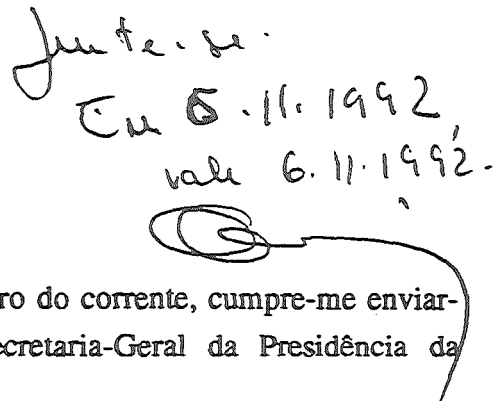 Junte-se.
Em 6.11.1992,
vale 6.11.1992.
ro do corrente, cumpre-me enviar-
ecretaria-Geral da Presidência da